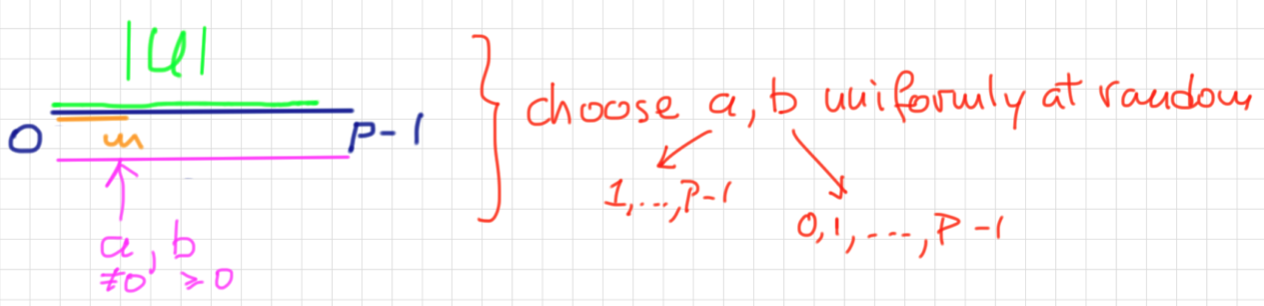 |U|
0 m p-1
a, b
≠0 ≥0
choose a, b uniformly at random
1,...,p-1
0,1,...,p-1